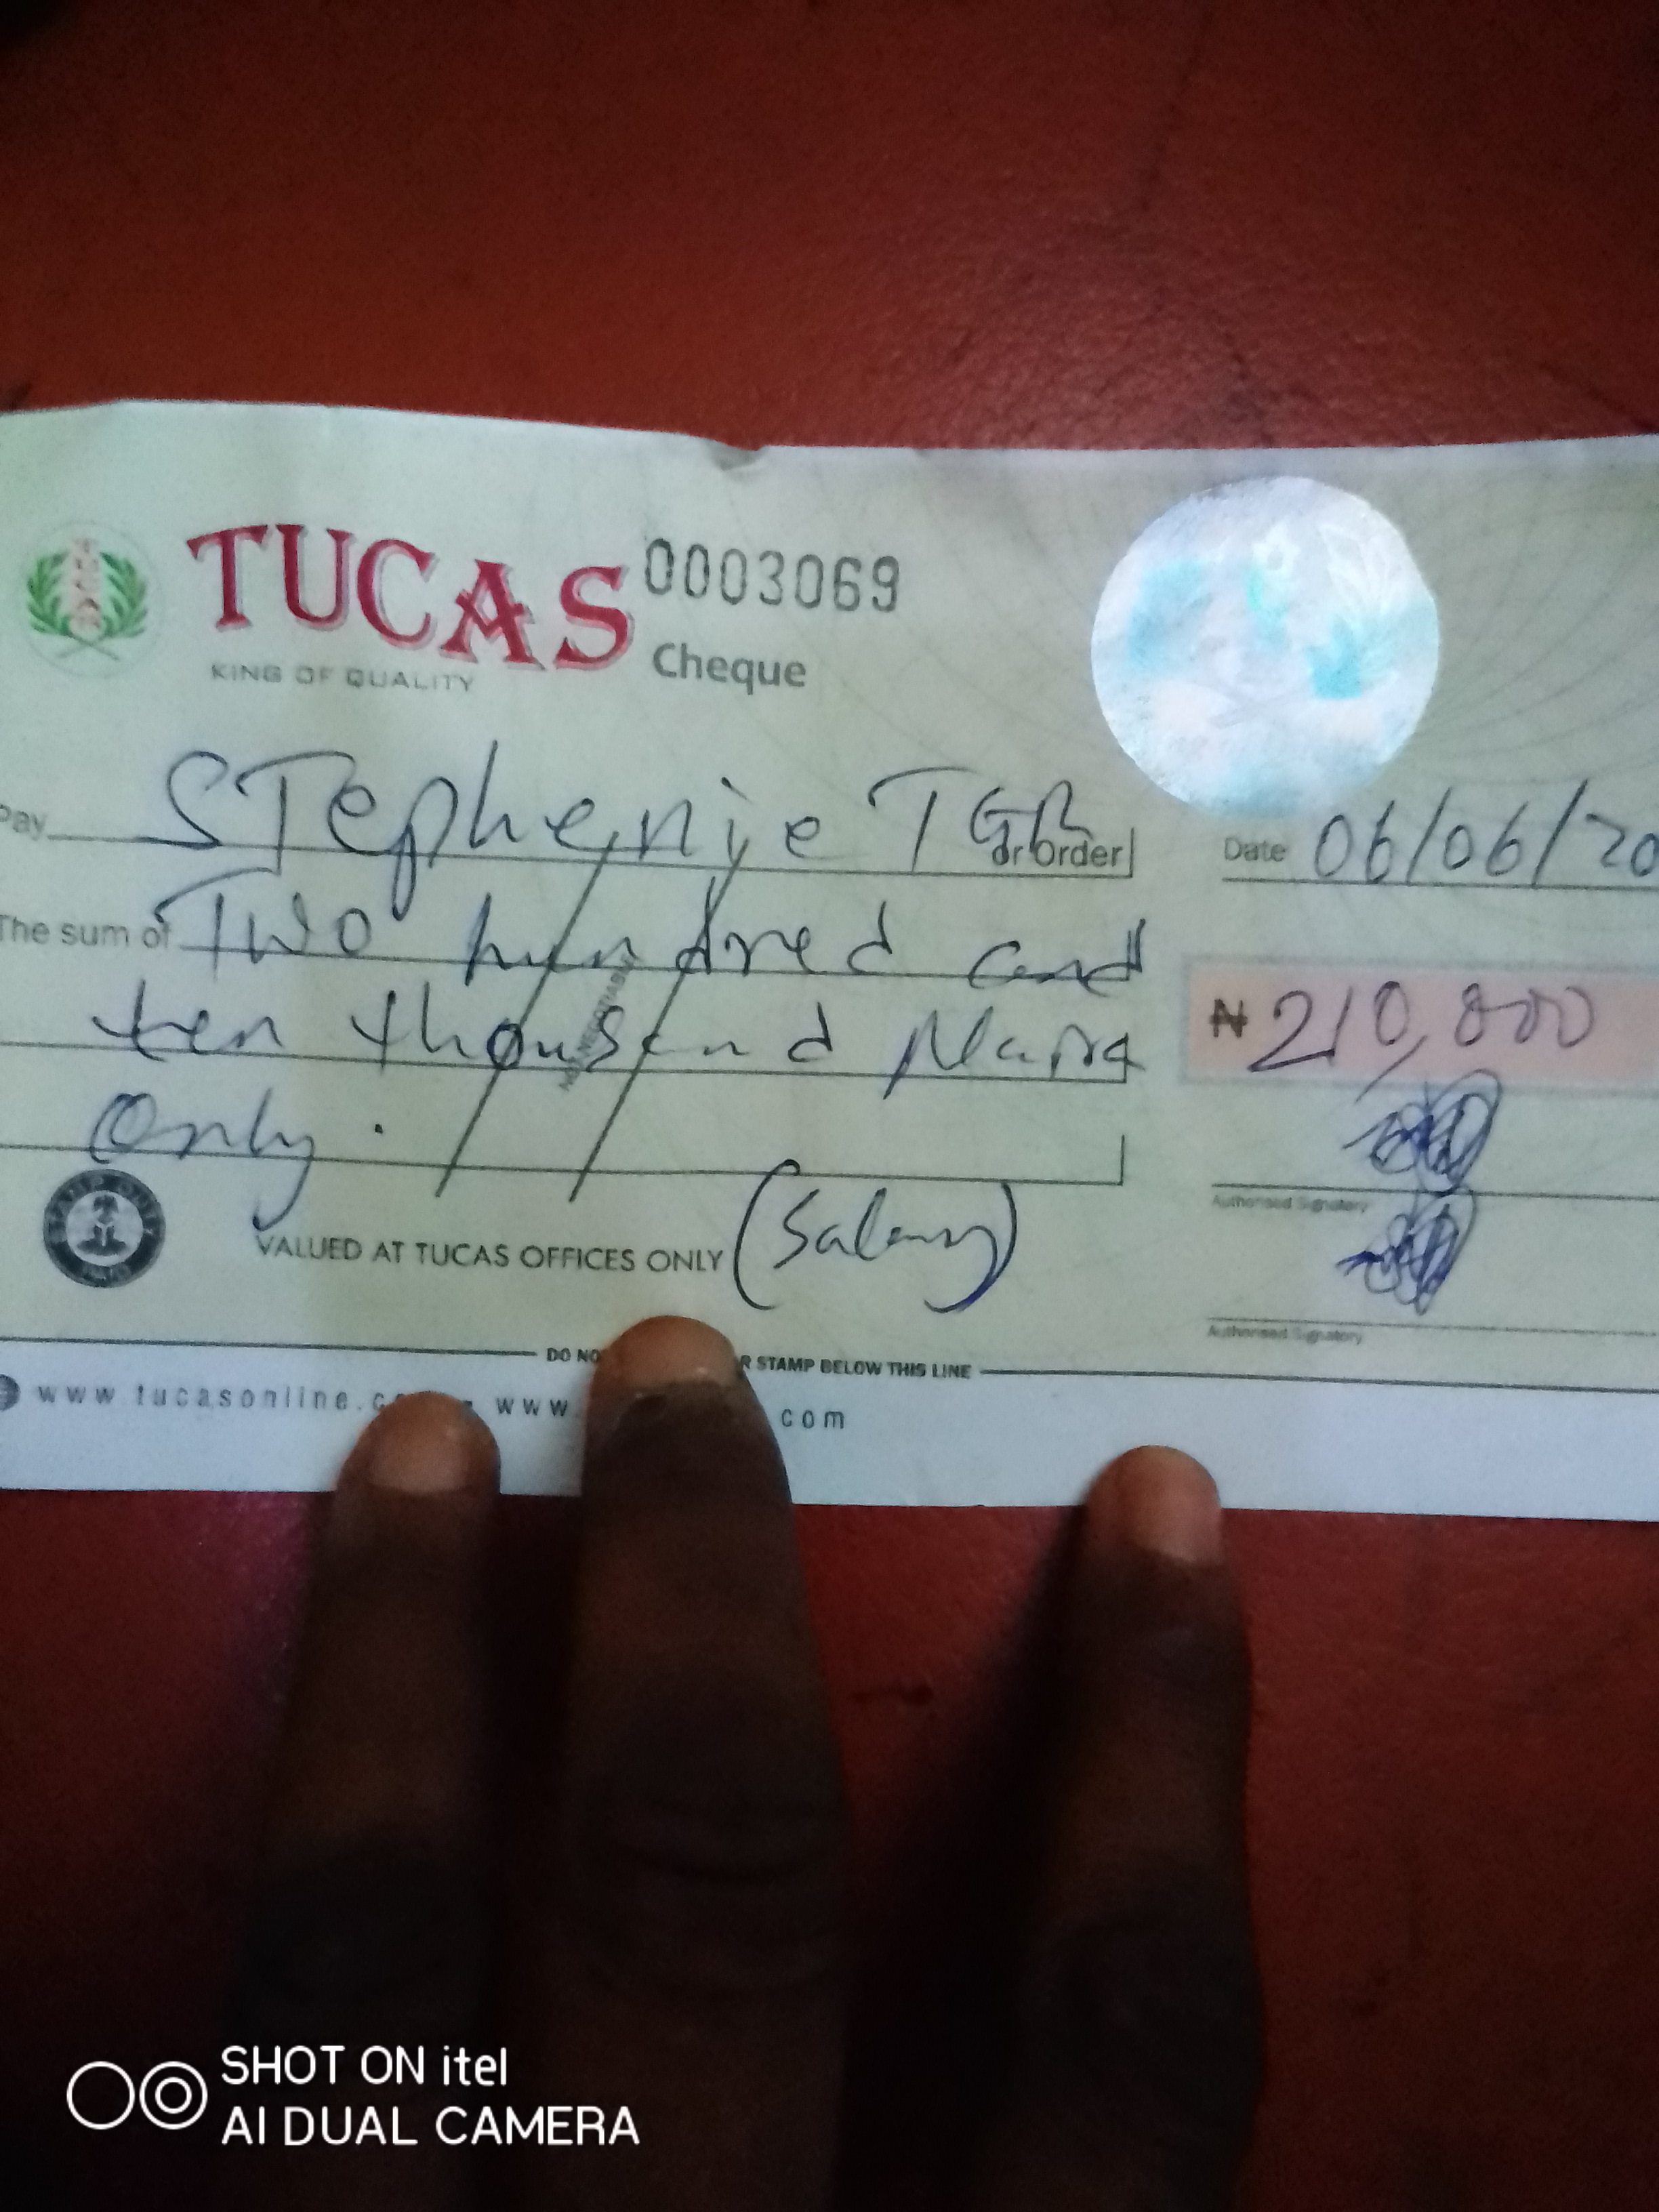 TUCAS 0003069
KING OF QUALITY Cheque
Pay STephenie TGR or Order Date 06/06/20
The sum of Two hundred and
ten thousand Naira ₦ 210,000
Only.
Authorised Signatory
VALUED AT TUCAS OFFICES ONLY (Salary)
Authorised Signatory
DO NO R STAMP BELOW THIS LINE
www.tucasonline.c www. com
SHOT ON itel
AI DUAL CAMERA